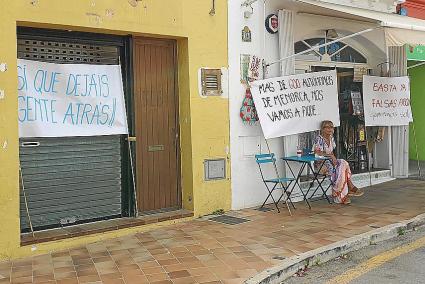 SI QUE DEJÁIS
GENTE ATRÁS!
MAS DE 600 AUTÓNOMOS
DE MENORCA, NOS
VAMOS A PIQUE
BASTA YA
FALSAS